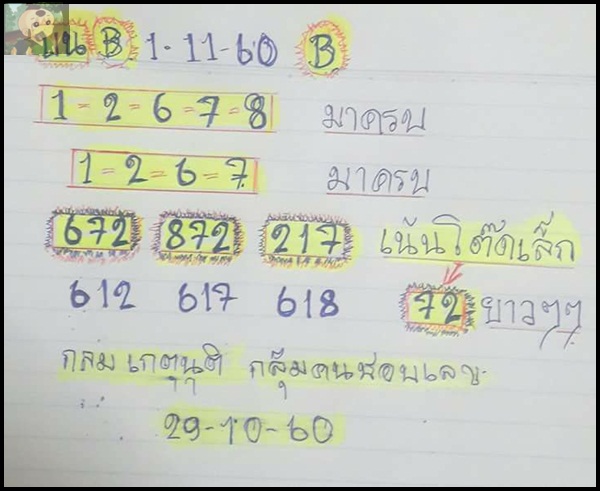 บน B 1-11-60 B
1-2-6-7-8 มาครบ
1-2-6-7 มาครบ
672 872 217 เน้นโต๊ดเล็ก
612 617 618 72 ยาวๆๆ
กลม เกตุนุติ กลุ่มคนชอบเลข
29-10-60